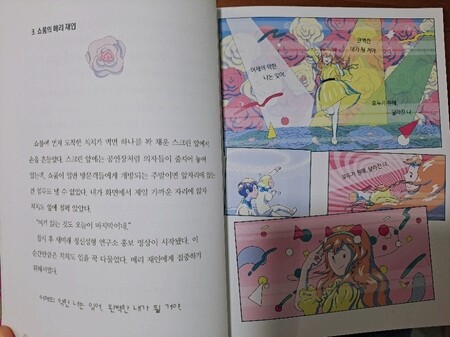 3. 쇼룸의 메리 재인
쇼룸에 먼저 도착한 치치가 벽면 하나를 꽉 채운 스크린 앞에서
손을 흔들었다. 스크린 앞에는 공연장처럼 의자들이 줄지어 놓여
있는데, 쇼룸이 일반 방문객들에게 개방되는 주말이면 앞자리에 앉는
건 엄두도 낼 수 없었다. 내가 화면에서 제일 가까운 자리에 앉자
치치도 옆에 털썩 앉았다.
"여기 앉는 것도 오늘이 마지막이네."
잠시 후 새비재 정신성형 연구소 홍보 영상이 시작됐다. 이
순간만큼은 치치도 입을 꾹 다물었다. 메리 재인에게 집중하기
위해서였다.
어제의 약한 나는 잊어. 완벽한 내가 될 거야.
완벽한
내가 될 거야
어제의 약한
나는 잊어.
모두가 원해,
달라진 나.
모두가 원해, 달라진 나.